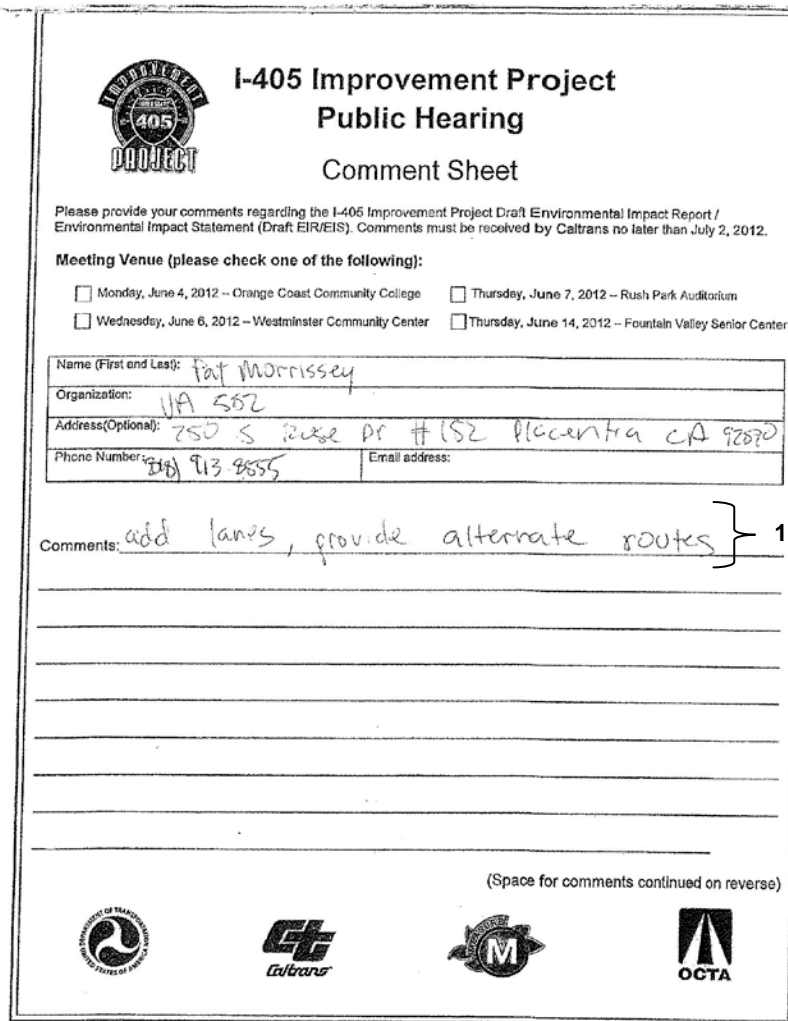 IMPROVEMENT
405
PROJECT
I-405 Improvement Project
Public Hearing
Comment Sheet
Please provide your comments regarding the I-405 Improvement Project Draft Environmental Impact Report /
Environmental Impact Statement (Draft EIR/EIS). Comments must be received by Caltrans no later than July 2, 2012.
Meeting Venue (please check one of the following):
Monday, June 4, 2012 – Orange Coast Community College
Thursday, June 7, 2012 – Rush Park Auditorium
Wednesday, June 6, 2012 – Westminster Community Center
Thursday, June 14, 2012 – Fountain Valley Senior Center
Name (First and Last): Pat Morrissey
Organization: UA 582
Address(Optional): 750 S Rose Dr #152 Placentia CA 92870
Phone Number: 913-8555
Email address:
Comments: add lanes, provide alternate routes
1
(Space for comments continued on reverse)
DEPARTMENT OF TRANSPORTATION
UNITED STATES OF AMERICA
Ct
Caltrans
MEASURE
M
OCTA